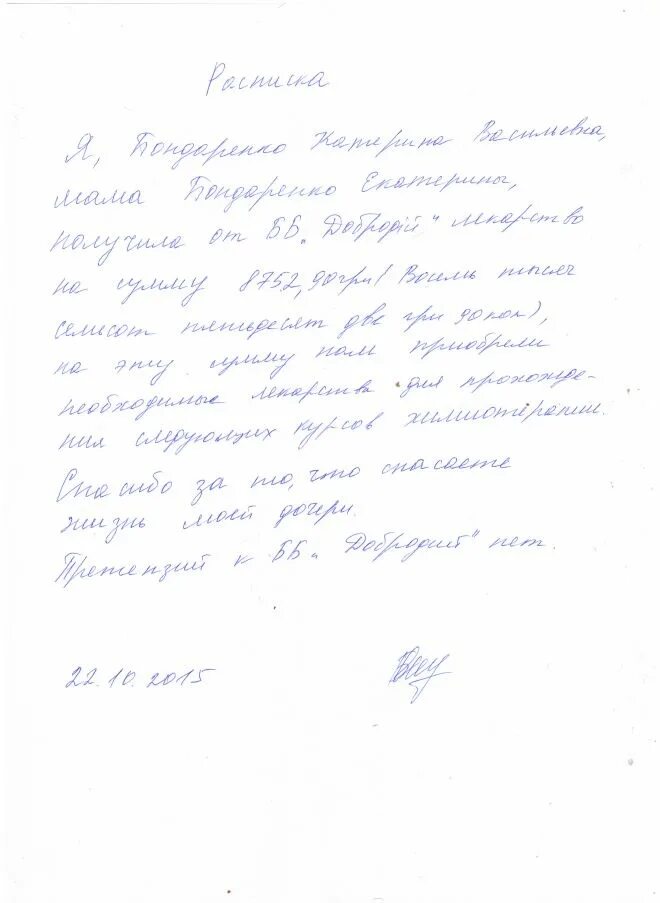 Расписка
Я, Бондаренко Катерина Васильевна,
мама Бондаренко Екатерины,
получила от ББ „Добродій" лекарство
на сумму 8752,90грн (Восемь тысяч
семьсот пятьдесят две грн 90коп),
на эту сумму нам приобрели
необходимые лекарства для прохожде-
ния следующих курсов химиотерапии.
Спасибо за то, что спасаете
жизнь моей дочери.
Претензий к ББ „Добродий" нет.
22.10.2015